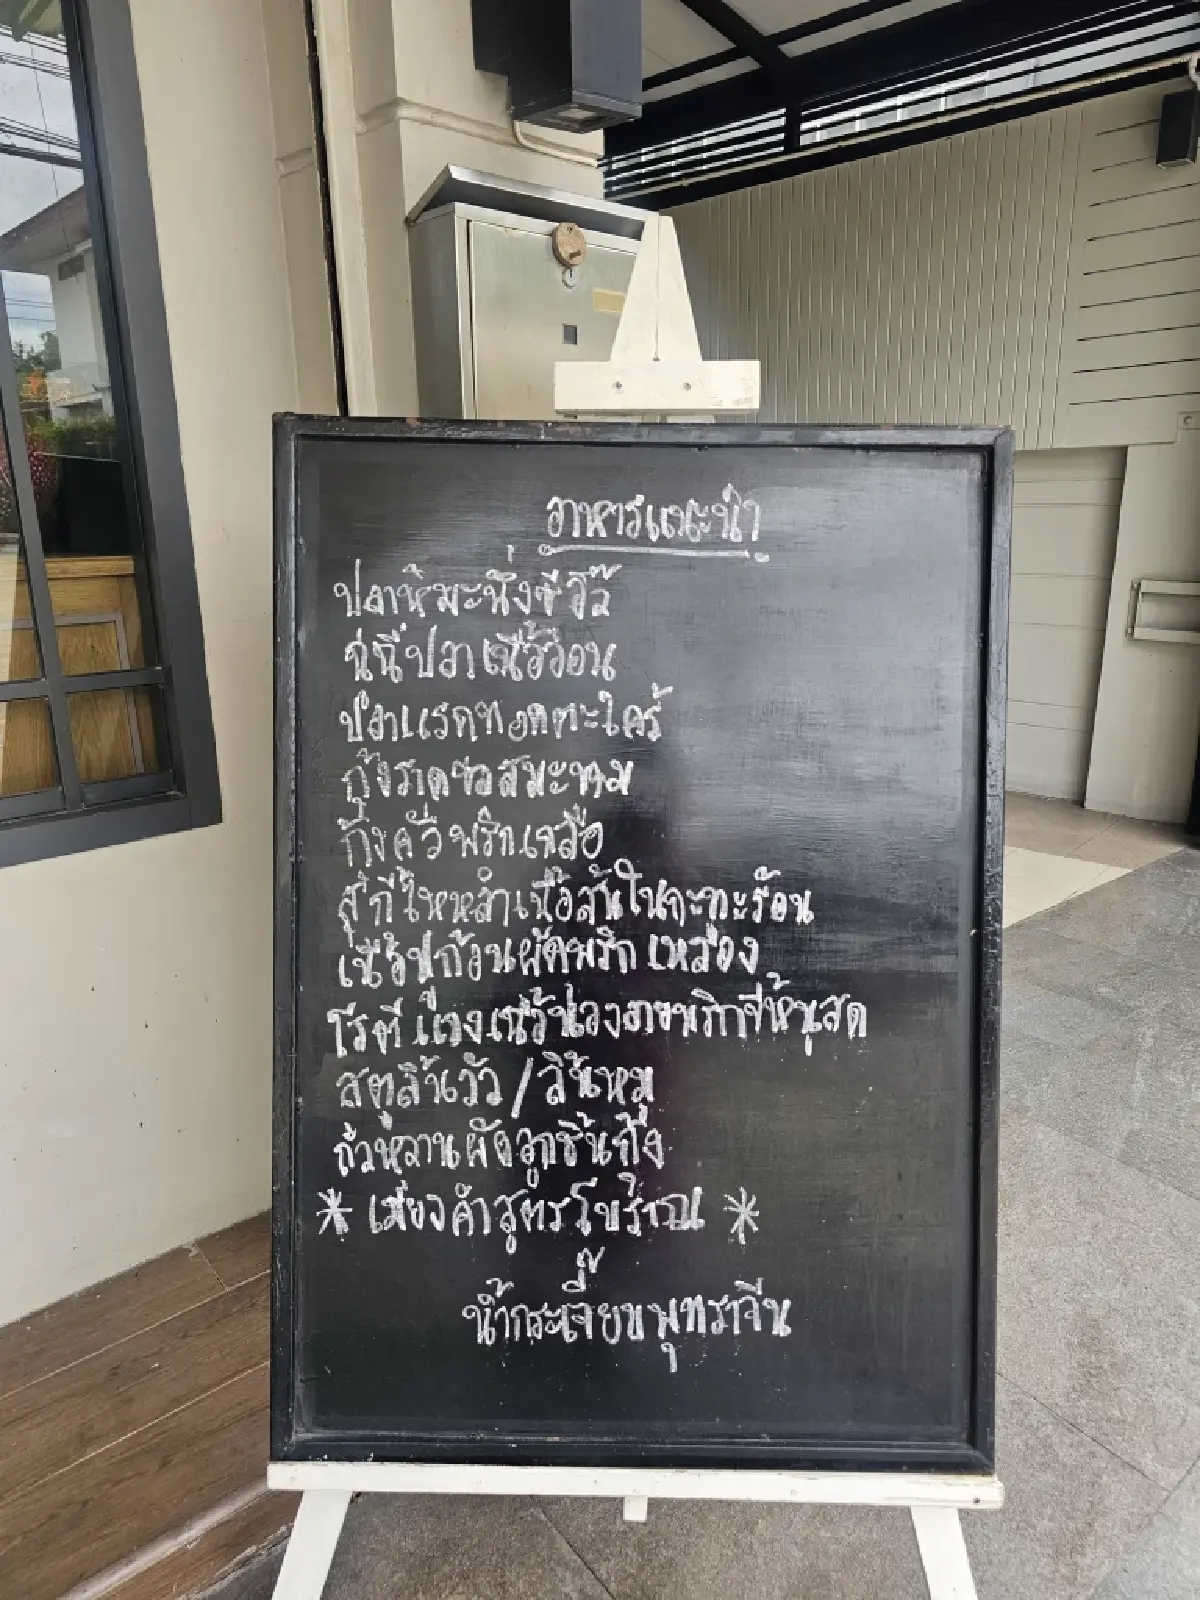 อาหารแนะนำ
ปลาหิมะนึ่งซีอิ๊ว
ฉู่ฉี่ปลาเนื้ออ่อน
ปลาแรดทอดตะไคร้
กุ้งราดซอสมะขาม
กุ้งคั่วพริกเกลือ
สุกี้ไหหลำเนื้อสันในกะทะร้อน
เนื้อปูก้อนผัดพริกเหลือง
โรตี แกงเนื้อน่องลายพริกขี้หนูสด
สตูลิ้นวัว / ลิ้นหมู
ถั่วหวานผัดลูกชิ้นกุ้ง
* เมี่ยงคำสูตรโบราณ *
น้ำกระเจี๊ยบพุทราจีน